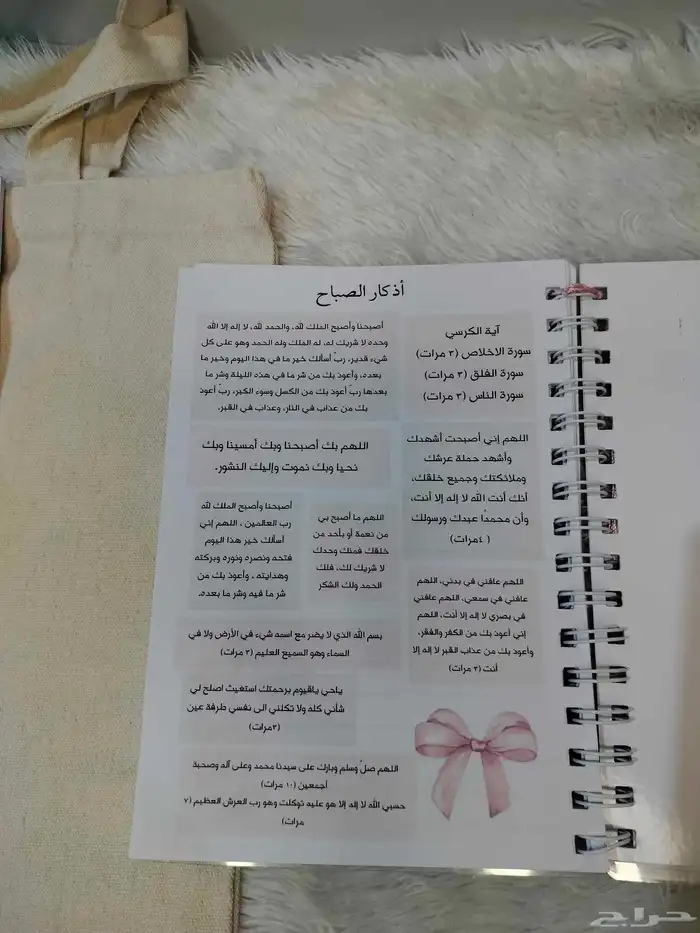 أذكار الصباح
آية الكرسي
سورة الاخلاص (٣ مرات)
سورة الفلق (٣ مرات)
سورة الناس (٣ مرات)
أصبحنا وأصبح الملك لله، والحمد لله، لا إله إلا الله
وحده لا شريك له، له الملك وله الحمد وهو على كل
شيء قدير، ربّ أسألك خير ما في هذا اليوم وخير ما
بعده، وأعوذ بك من شر ما في هذه الليلة وشر ما
بعدها ربّ أعوذ بك من الكسل وسوء الكبر، ربّ أعوذ
بك من عذاب في النار، وعذاب في القبر.
اللهم إني أصبحت أشهدك
وأشهد حملة عرشك
وملائكتك وجميع خلقك،
أنك أنت الله لا إله إلا أنت،
وأن محمدًا عبدك ورسولك
(٤مرات)
اللهم بك أصبحنا وبك أمسينا وبك
نحيا وبك نموت وإليك النشور.
اللهم ما أصبح بي
من نعمة أو بأحد من
خلقك فمنك وحدك
لا شريك لك، فلك
الحمد ولك الشكر
أصبحنا وأصبح الملك لله
رب العالمين ، اللهم إني
أسألك خير هذا اليوم
فتحه ونصره ونوره وبركته
وهدايته ، وأعوذ بك من
شر ما فيه وشر ما بعده.
اللهم عافني في بدني، اللهم
عافني في سمعي، اللهم عافني
في بصري لا إله إلا أنت، اللهم
إني أعوذ بك من الكفر والفقر،
وأعوذ بك من عذاب القبر لا إله إلا
أنت (٣ مرات)
بسم الله الذي لا يضر مع اسمه شيء في الأرض ولا في
السماء وهو السميع العليم (٣ مرات)
ياحي ياقيوم برحمتك استغيث اصلح لي
شأني كله ولا تكلني الى نفسي طرفة عين
(٣مرات)
اللهم صلّ وسلم وبارك على سيدنا محمد وعلى آله وصحبة
أجمعين (١٠ مرات)
حسبي الله لا إله إلا هو عليه توكلت وهو رب العرش العظيم (٧
مرات)
حراج